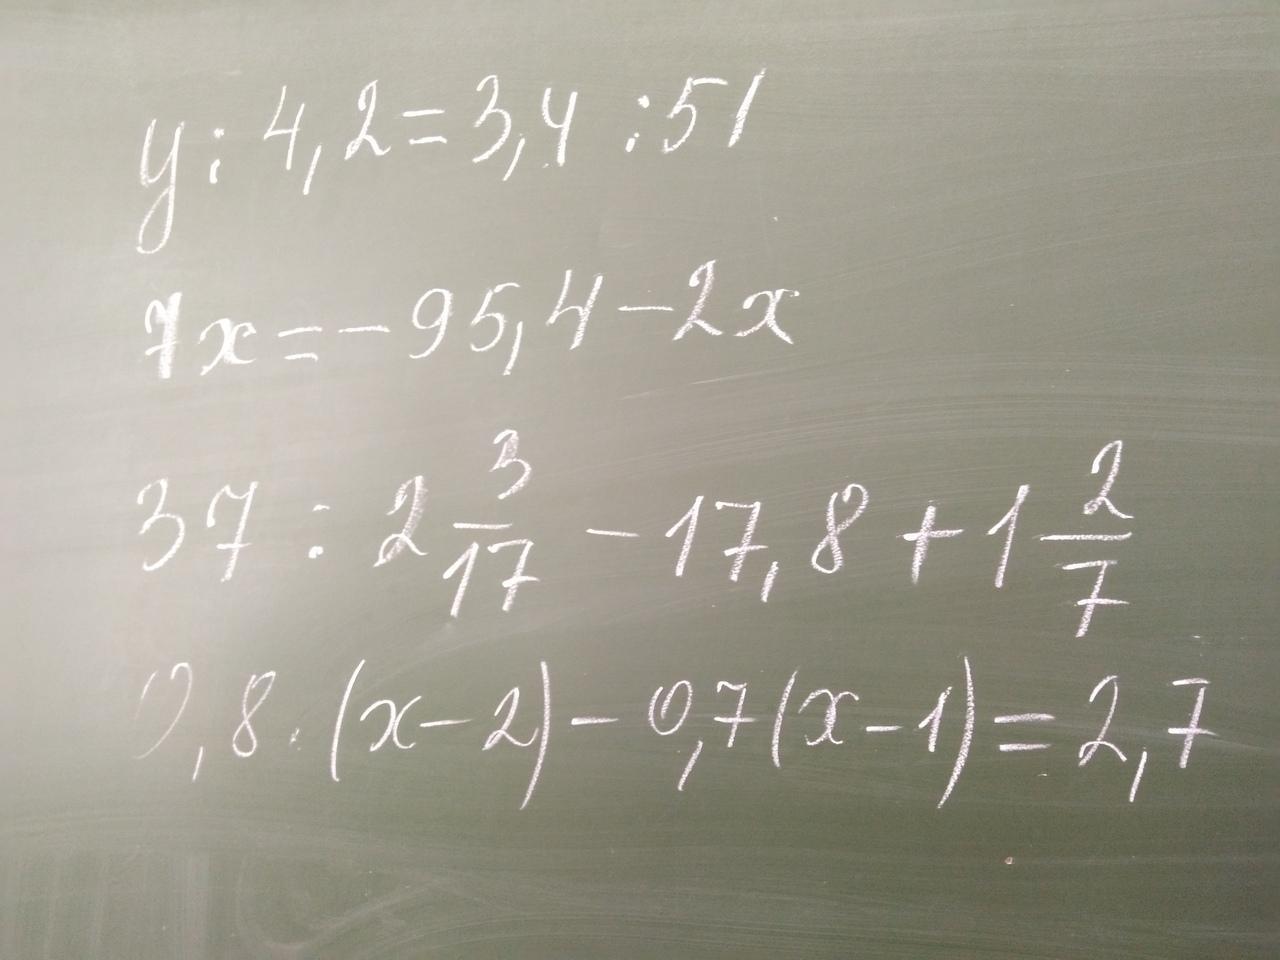 y : 4,2 = 3,4 : 51
7x = -95,4 - 2x
37 : 2 3/17 - 17,8 + 1 2/7
0,8 · (x - 2) - 0,7(x - 1) = 2,7